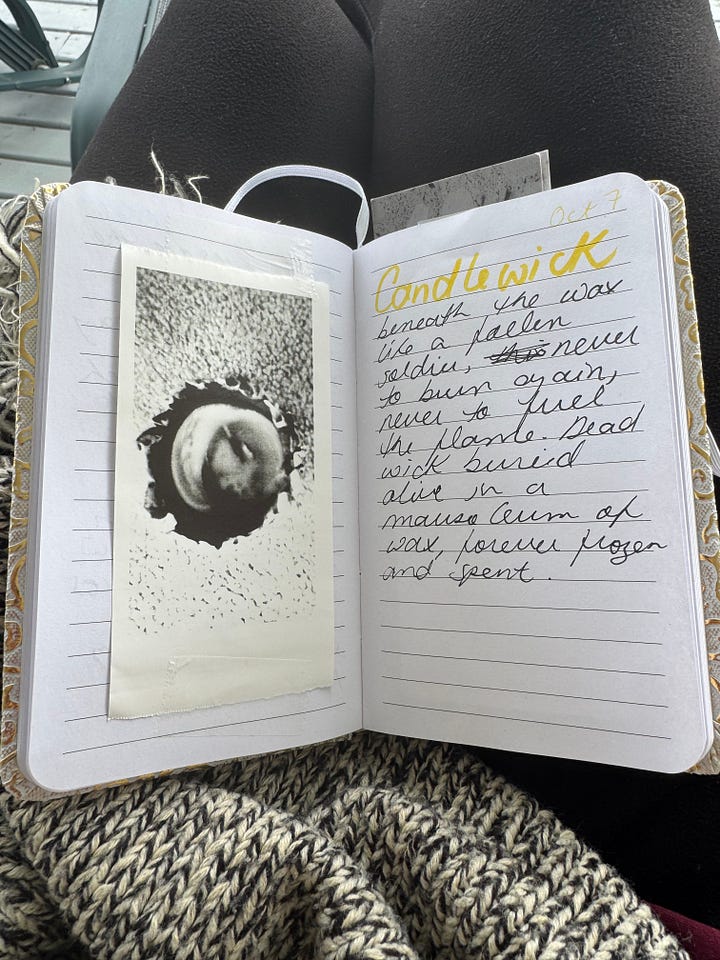 Oct 7
Candlewick
beneath the wax
like a fallen
soldier, never
to burn again,
never to fuel
the flame. Dead
wick buried
alive in a
mausoleum of
wax, forever frozen
and spent.